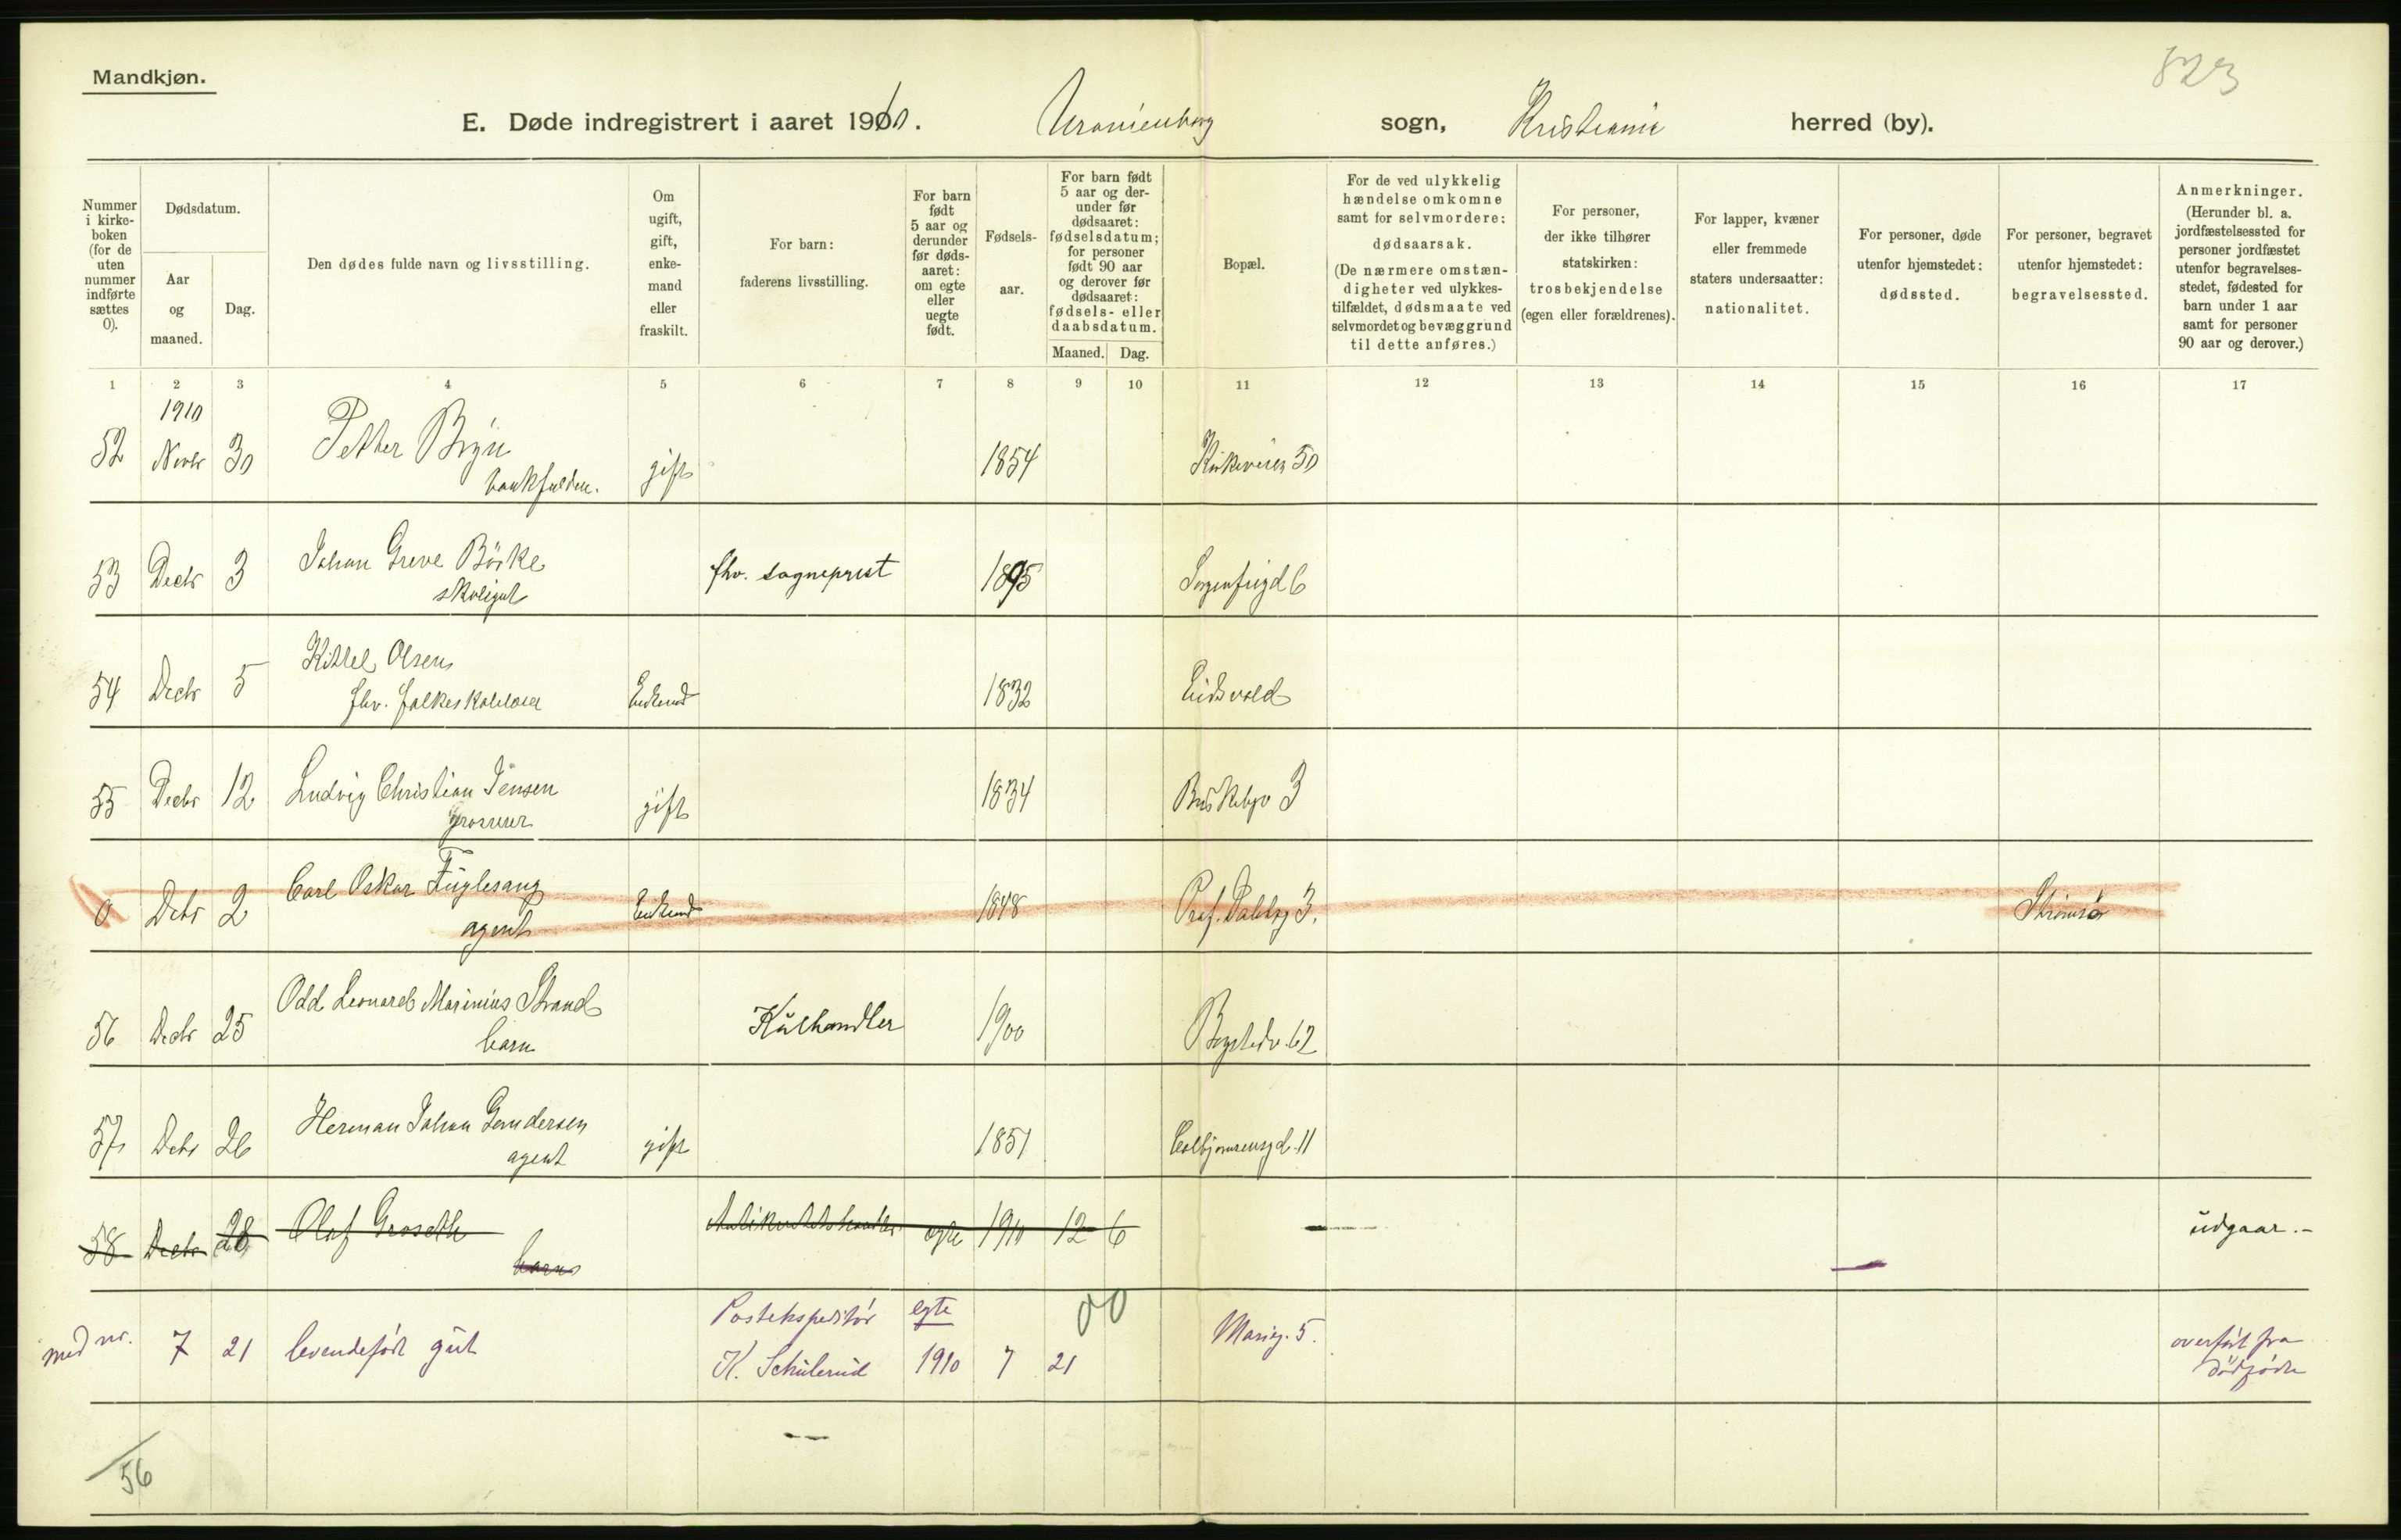 Mandkjøn.
823
E. Døde indregistrert i aaret 1910. Uranienborg sogn, Kristiania herred (by).
Nummer i kirke-boken (for de uten nummer indførte sættes 0).
Dødsdatum.
Aar og maaned.
Dag.
Den dødes fulde navn og livsstilling.
Om ugift, gift, enke-mand eller fraskilt.
For barn: faderens livsstilling.
For barn født 5 aar og derunder før døds-aaret: om egte eller uegte født.
Fødsels-aar.
For barn født 5 aar og der-under før dødsaaret: fødselsdatum; for personer født 90 aar og derover før dødsaaret: fødsels- eller daabsdatum.
Maaned. Dag.
Bopæl.
For de ved ulykkelig hændelse omkomne samt for selvmordere: dødsaarsak.
(De nærmere omstæn-digheter ved ulykkes-tilfældet, dødsmaate ved selvmordet og bevæggrund til dette anføres.)
For personer, der ikke tilhører statskirken: trosbekjendelse (egen eller forældrenes).
For lapper, kvæner eller fremmede staters undersaatter: nationalitet.
For personer, døde utenfor hjemstedet: dødssted.
For personer, begravet utenfor hjemstedet: begravelsessted.
Anmerkninger.
(Herunder bl. a. jordfæstelsessted for personer jordfæstet utenfor begravelses-stedet, fødested for barn under 1 aar samt for personer 90 aar og derover.)
1 2 3 4 5 6 7 8 9 10 11 12 13 14 15 16 17
1910
52 Novbr 30 Petter Bryn gift 1854 Kirkeveien 50
bankfuldm.
53 Decbr 3 Johan Greve Börke fhv. sogneprest 1895 Sorgenfrigd 6
skoligut
54 Decbr 5 Kittel Olsen Enkemd 1832 Eidsvold
fhv. folkeskolelærer
55 Decbr 12 Ludvig Christian Jensen gift 1834 Briskebyv 3
grosserer
0 Debr 2 Carl Oskar Fuglesang Enkemd 1848 Prof. Dahlsg 3. Strömsö
agent
56 Decbr 25 Odd Leonard Marinius Strand Kulhandler 1900 Bogstadv. 62
barn
57 Debr 26 Herman Johan Gundersen gift 1851 Colbjørnsensgd. 11
agent
58 Decbr 28 Olaf Groseth Antikvitetshandler egte 1910 12 6 udgaar.-
barn
med nr. 7 21 levendefödt gut Postekspeditör egte 00 Marieg. 5. overfört fra
K. Schülerud 1910 7 21 dödfödte
56